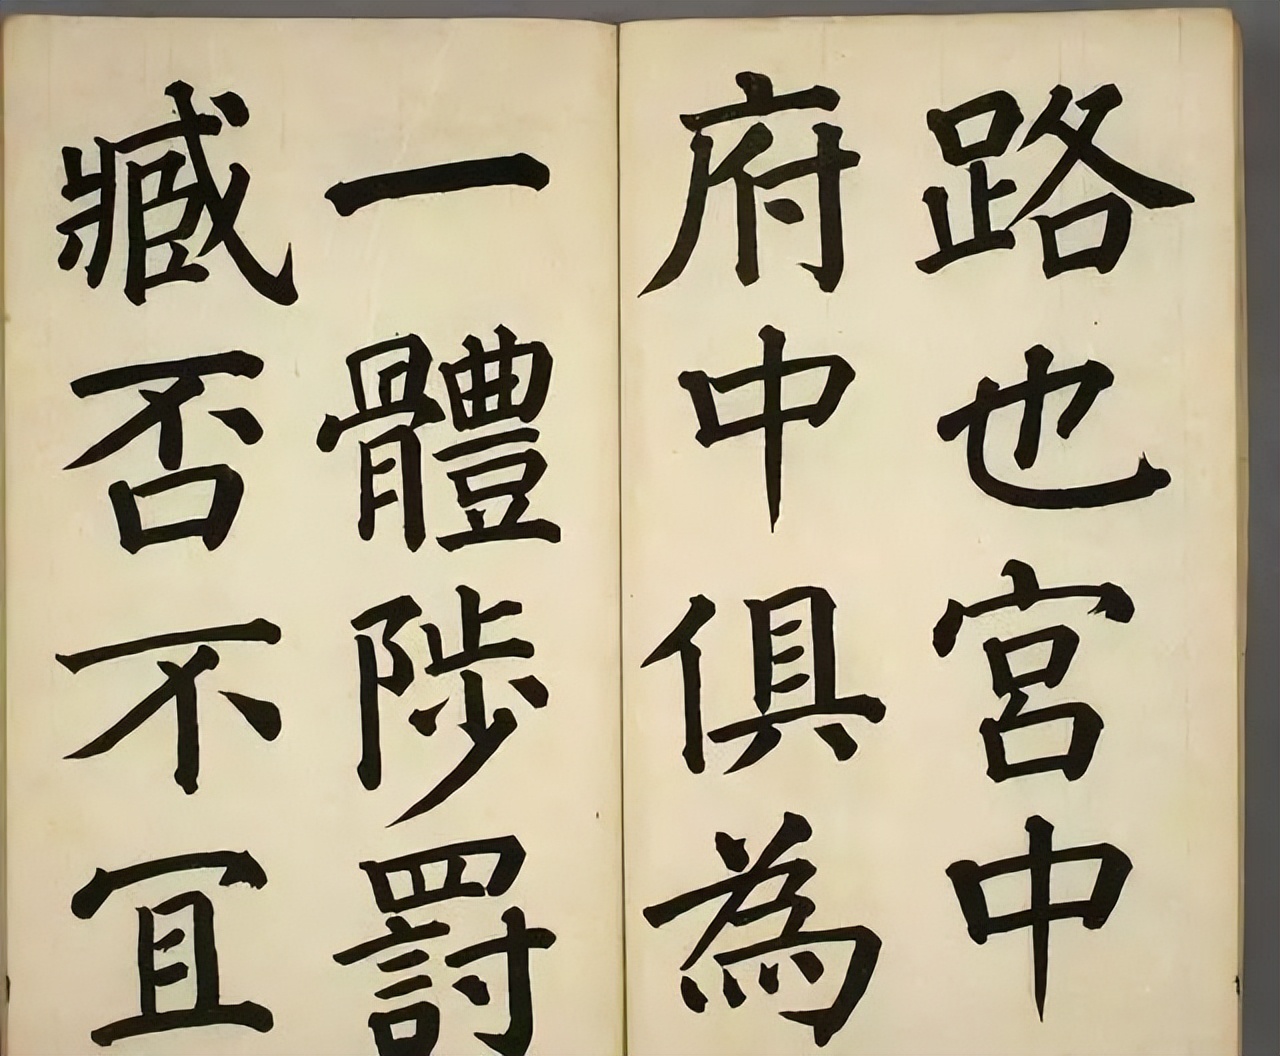 路也宮中
府中俱為
一體陟罰
臧否不宜